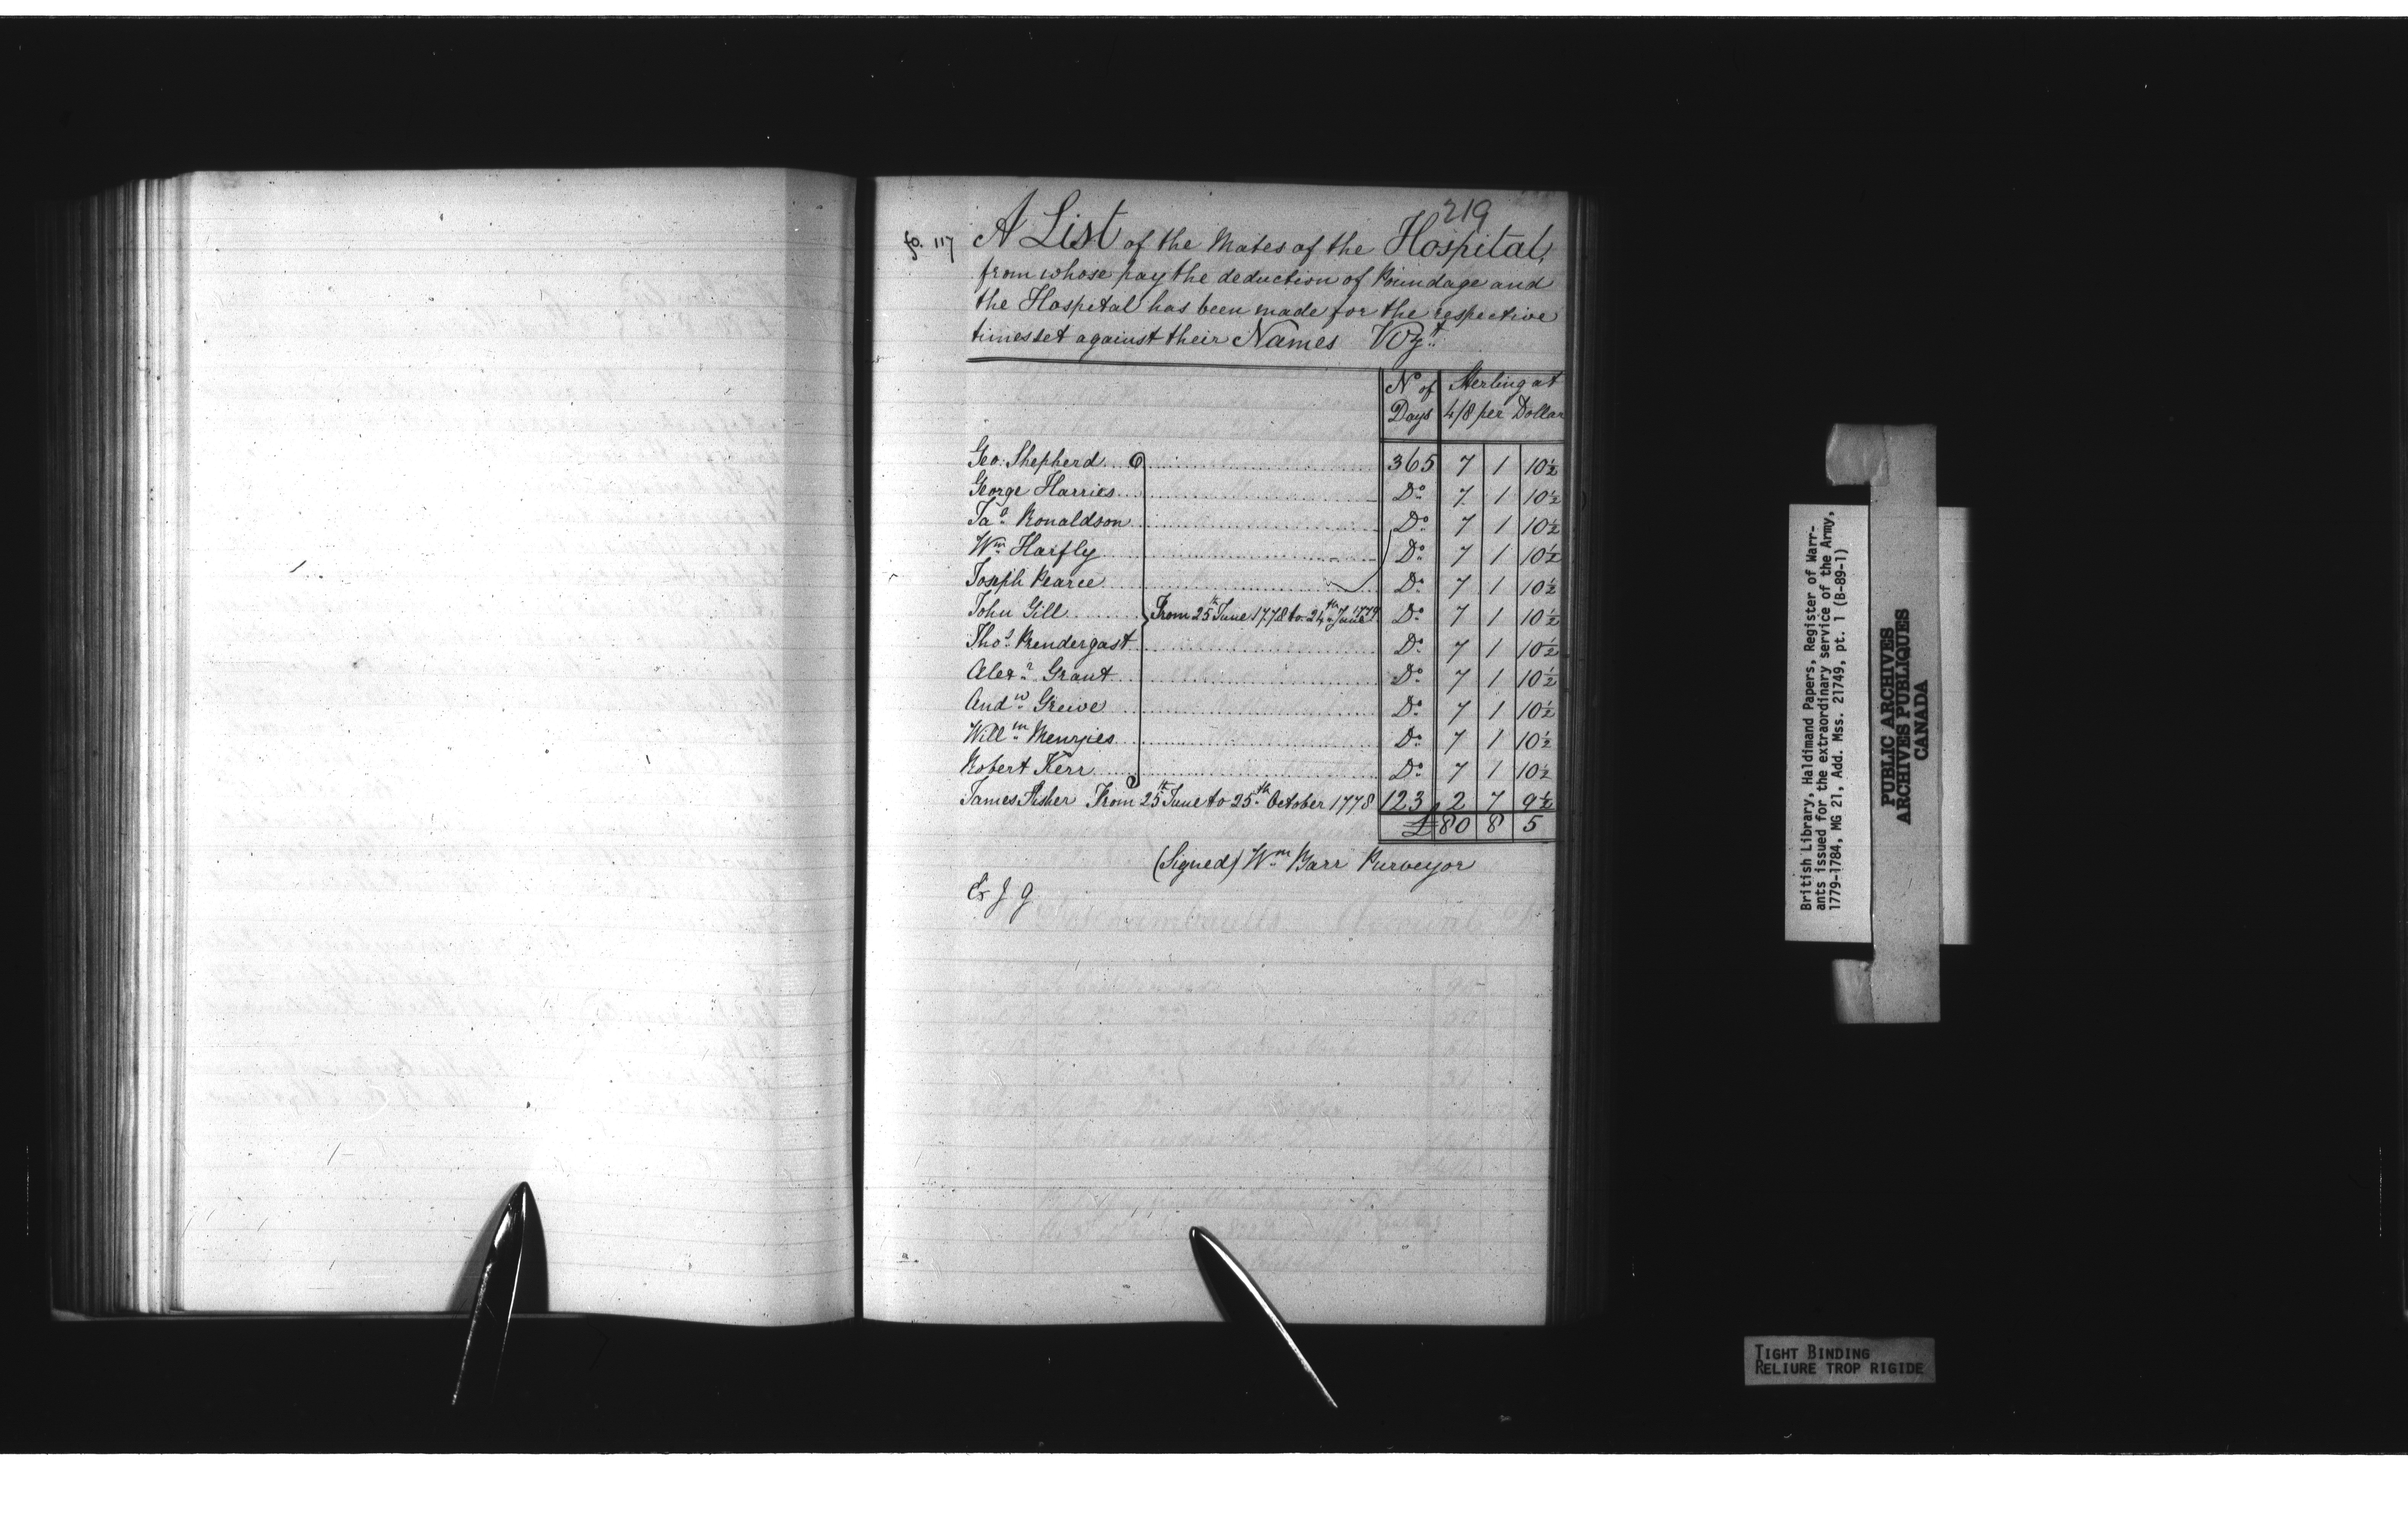 219
fo. 117
A List of the Mates of the Hospital,
from whose pay the deduction of Poundage and
the Hospital has been made for the respective
times set against their Names Vizt.
No. of Days Sterling at 4/8 per Dollar
Geo: Shepherd 365 7 1 10½
George Harries Do. 7 1 10½
Jas. Ronaldson Do. 7 1 10½
Wm. Harfly Do. 7 1 10½
Joseph Pearce Do. 7 1 10½
John Gill From 25th June 1778 to 24th June 1779 Do. 7 1 10½
Thos. Prendergast Do. 7 1 10½
Alexr. Grant Do. 7 1 10½
Andw. Greive Do. 7 1 10½
Willm. Menzies Do. 7 1 10½
Robert Kerr Do. 7 1 10½
James Fisher From 25th June to 25th October 1778 123 2 7 9½
£ 80 8 5
(Signed) Wm. Barr Purveyor
Ex J G
British Library, Haldimand Papers, Register of Warr-
ants issued for the extraordinary service of the Army,
1779-1784, MG 21, Add. Mss. 21749, pt. 1 (B-89-1)
PUBLIC ARCHIVES
ARCHIVES PUBLIQUES
CANADA
TIGHT BINDING
RELIURE TROP RIGIDE